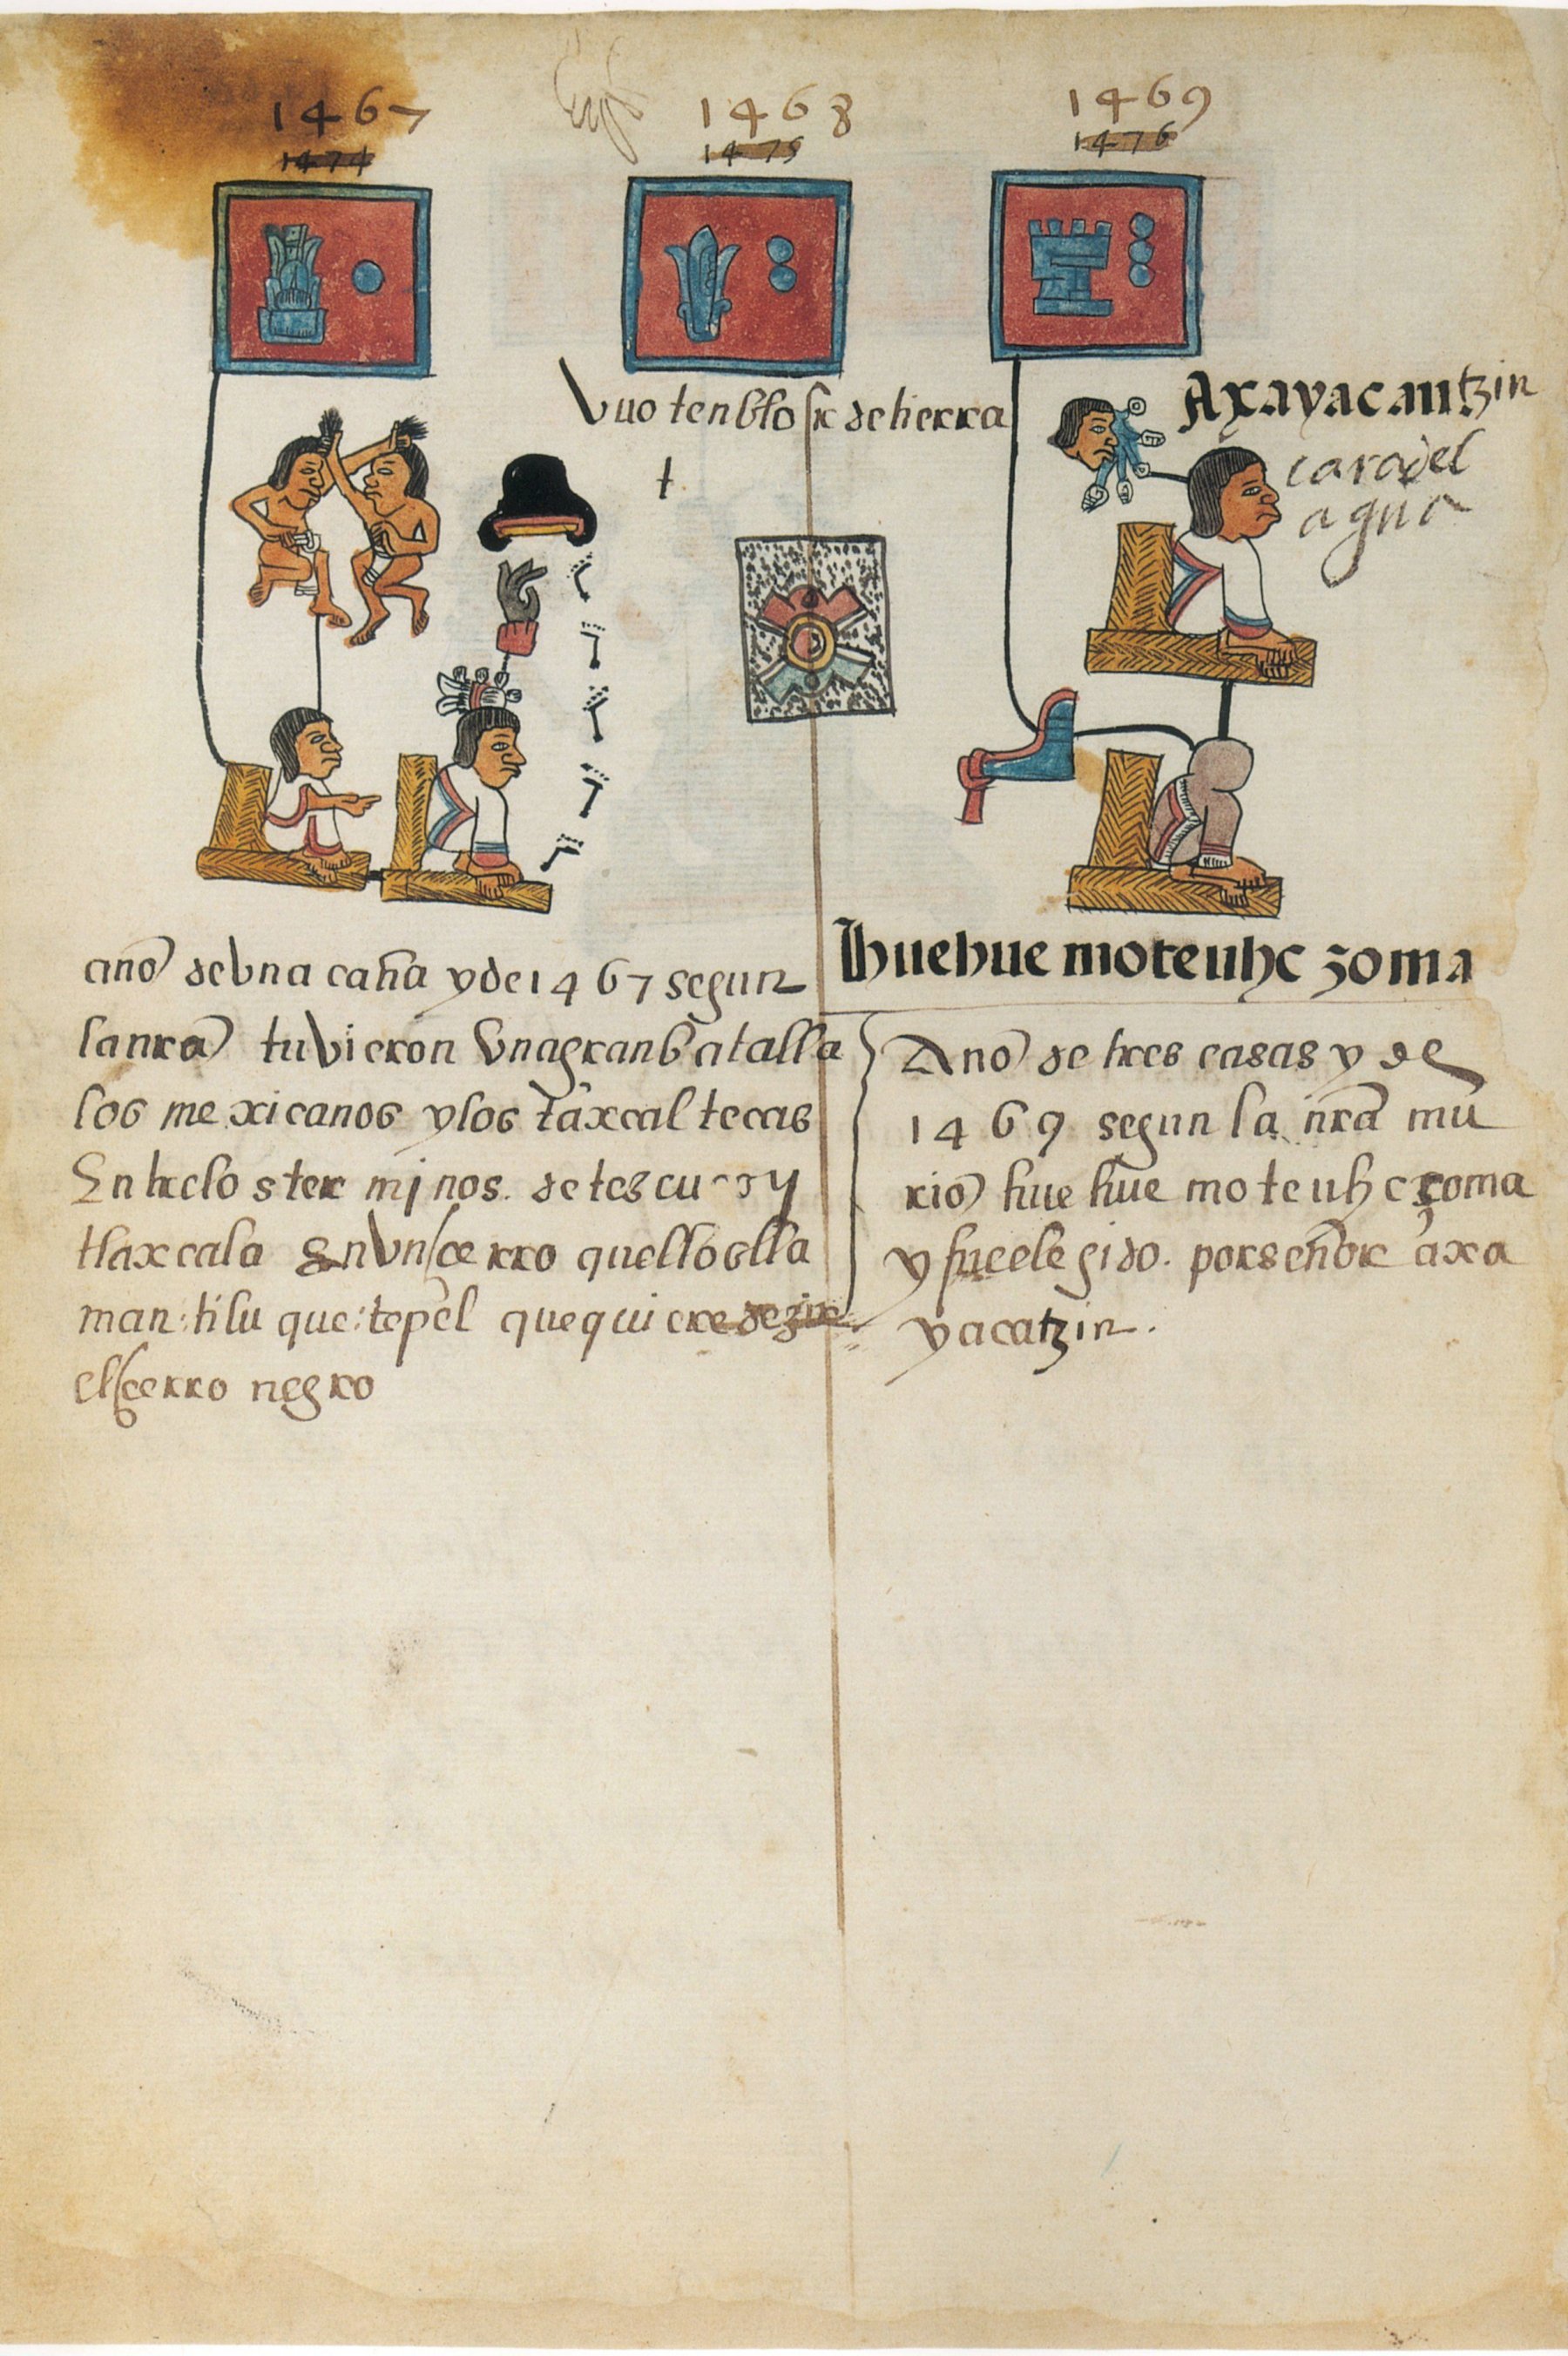 1467
1468
1469
1474
1475
1476
vuo tenblor de tierra
t
Axayacautzin
cara del
agua
año de vna caña y de 1467 segun
la nra tuvieron vna gran batalla
los mexicanos y los tlaxcaltecas
Entre los terminos. de tescuco y
tlaxcala en vn cerro que llos lla
man: tilu que: tepel que quiere dezir
el cerro negro
huehue moteuhc zoma
Año de tres casas y de
1469 segun la nra mu
rio huehue moteuhcçoma
y fue elegido. por señor axa
yacatzin.